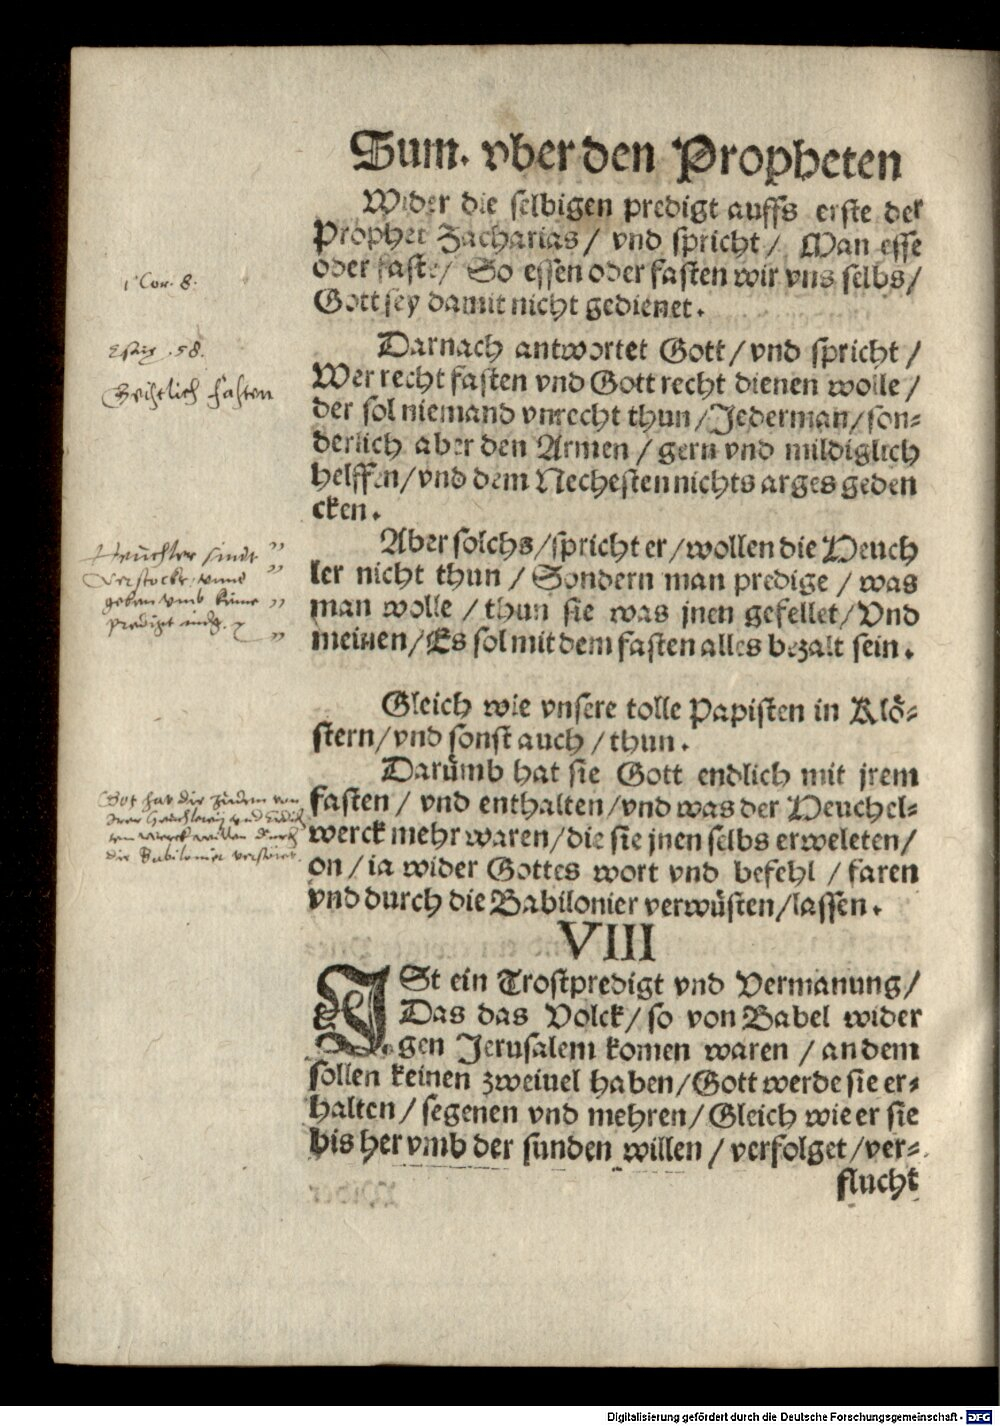 Sum. vber den Propheten
Wider die selbigen predigt auffs erste der
Prophet Zacharias / vnd spricht / Man esse
oder faste / So essen oder fasten wir vns selbs /
Gott sey damit nicht gedienet.
1 Cor. 8.
Darnach antwortet Gott / vnd spricht /
Wer recht fasten vnd Gott recht dienen wolle /
der sol niemand vnrecht thun / Jederman / son-
derlich aber den Armen / gern vnd mildiglich
helffen / vnd dem Nechesten nichts arges geden
cken.
Esaię .58.
Geistlich fasten
Aber solchs / spricht er / wollen die Heuch
ler nicht thun / Sondern man predige / was
man wolle / thun sie was jnen gefellet / Vnd
meinen / Es sol mit dem fasten alles bezalt sein.
Heuchler sindt
verstockt, vnnd
geben vmb keine
predigt
Gleich wie vnsere tolle Papisten in Klö-
stern / vnd sonst auch / thun.
Darümb hat sie Gott endlich mit jrem
fasten / vnd enthalten / vnd was der Heuchel-
werck mehr waren / die sie jnen selbs erweleten /
on / ja wider Gottes wort vnd befehl / faren
vnd durch die Babilonier verwüsten / lassen.
Got hat die Juden von
jrer Heuchlerej vnd
werck willen durch
die Babilonier verstört.
VIII
JSt ein Trostpredigt vnd Vermanung /
Das das Volck / so von Babel wider
gen Jerusalem komen waren / an dem
sollen keinen zweiuel haben / Gott werde sie er-
halten / segenen vnd mehren / Gleich wie er sie
bis her vmb der sunden willen / verfolget / ver-
flucht
Digitalisierung gefördert durch die Deutsche Forschungsgemeinschaft - DFG